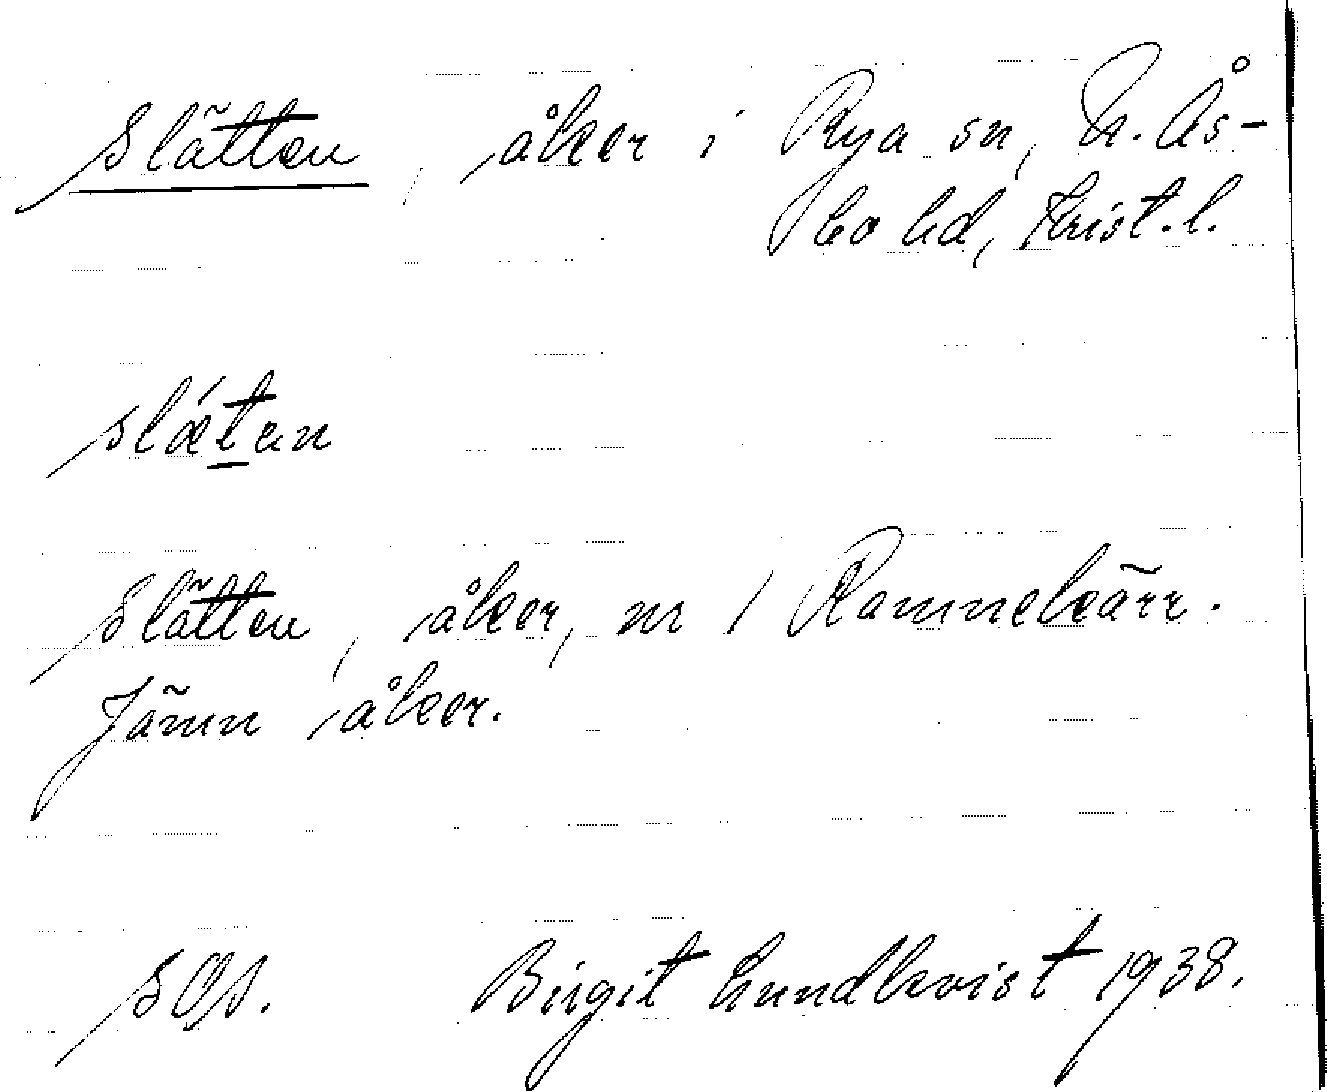 Slätten, åker i Rya sn, N. Ås-
bo hd, Krist. l.
slǽtan
Slätten, åker, nr 1 Rammekärr.
Jämn åker.
SOS. Birgit Lundkvist 1938.